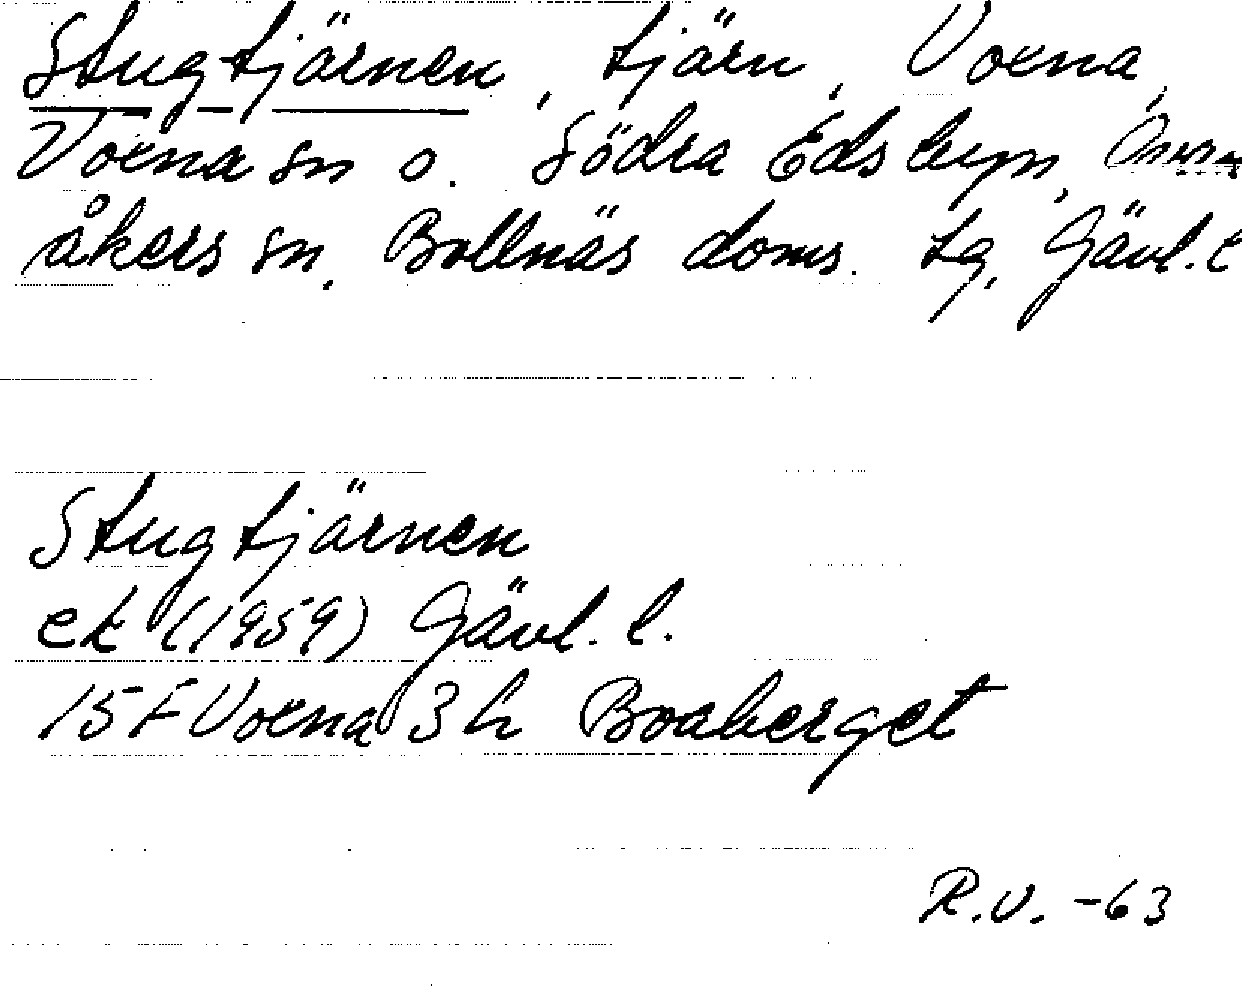 Stugtjärnen, tjärn, Voxna,
Voxna sn o. Södra Edsbyn, Ovan
åkers sn. Bollnäs doms. tg, Gävl. l
Stugtjärnen
ek (1959) Gävl. l.
15 F Voxna 3 h Boaberget
R.V. -63